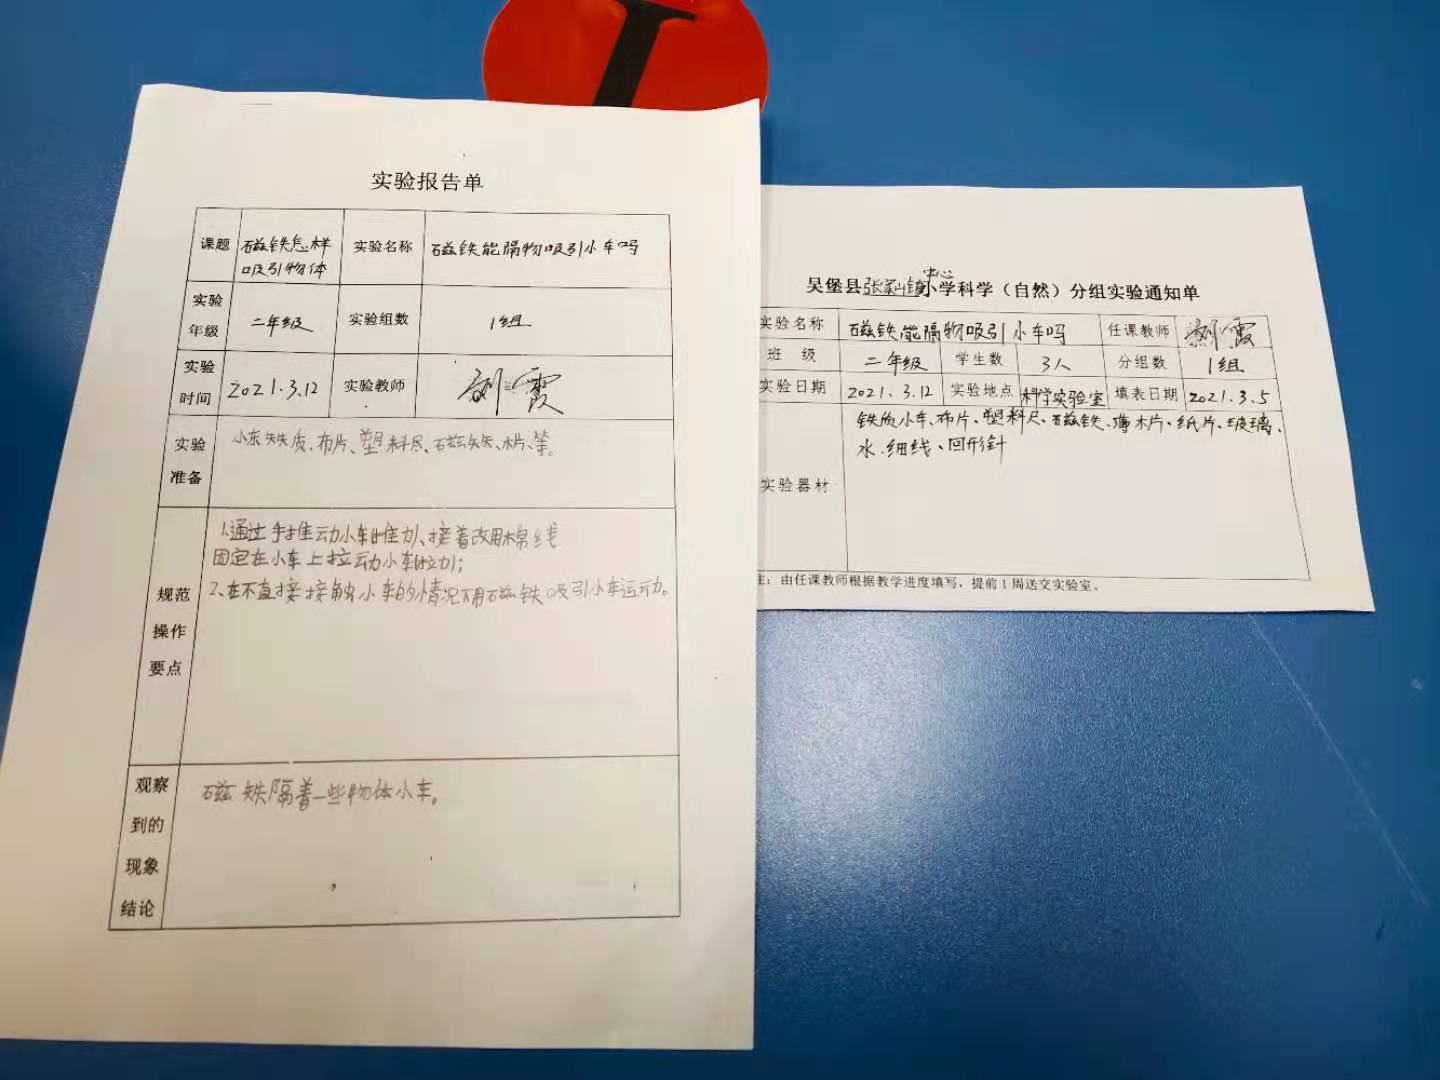 I
实验报告单
课题 磁铁怎样 实验名称 磁铁能隔物吸引小车吗
吸引物体
实验 年级 二年级 实验组数 1组
实验 时间 2021.3.12 实验教师 霞
实验 准备 小东铁质、布片、塑料尺、磁铁、木片、等。
规范 操作 要点
1.通过手推动小车推力、接着改用棉线
固定在小车上拉动小车拉力;
2、在不直接接触小车的情况下用磁铁吸引小车运动。
观察 到的 现象 结论
磁铁隔着一些物体小车。
吴堡县张家山镇中心小学科学（自然）分组实验通知单
实验名称 磁铁能隔物吸引小车吗 任课教师 霞
班 级 二年级 学生数 3人 分组数 1组
实验日期 2021.3.12 实验地点 科学实验室 填表日期 2021.3.5
实验器材 铁质小车、布片、塑料尺、磁铁、薄木片、纸片、玻璃、
水、细线、回形针
注：由任课教师根据教学进度填写，提前1周送交实验室。